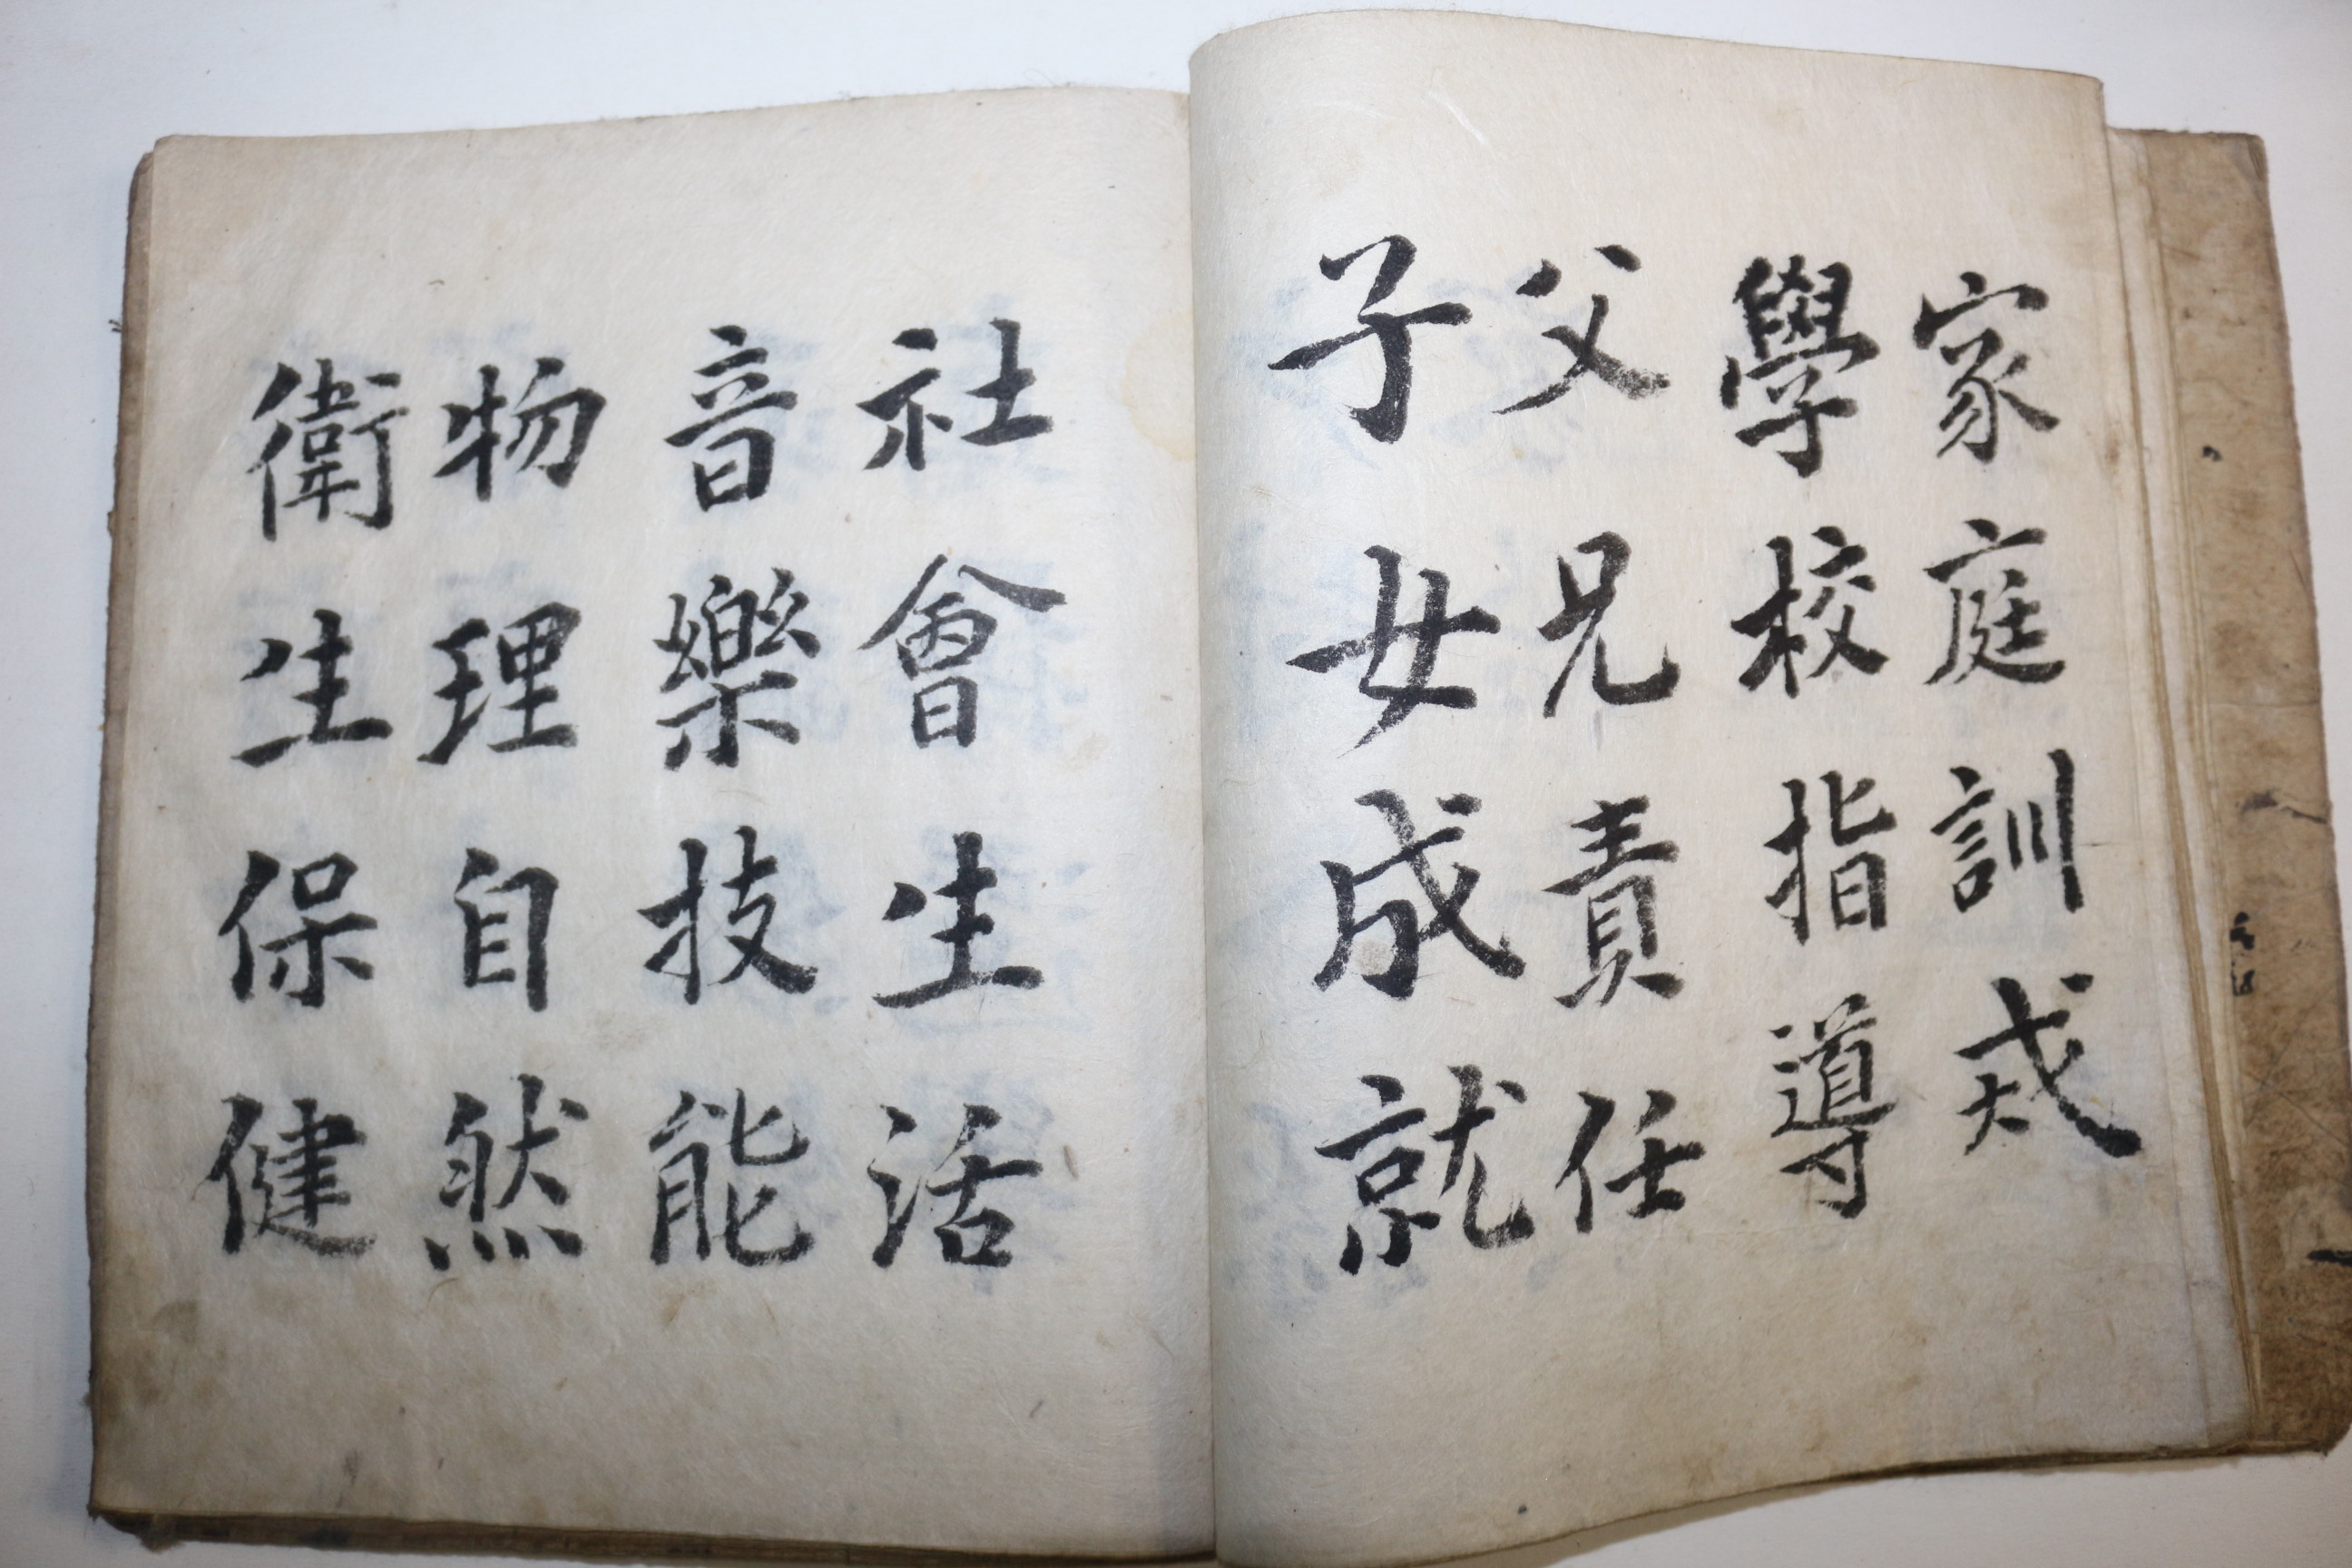 家庭訓戒
學校指導
父兄責任
子女成就
社會生活
音樂技能
物理自然
衛生保健